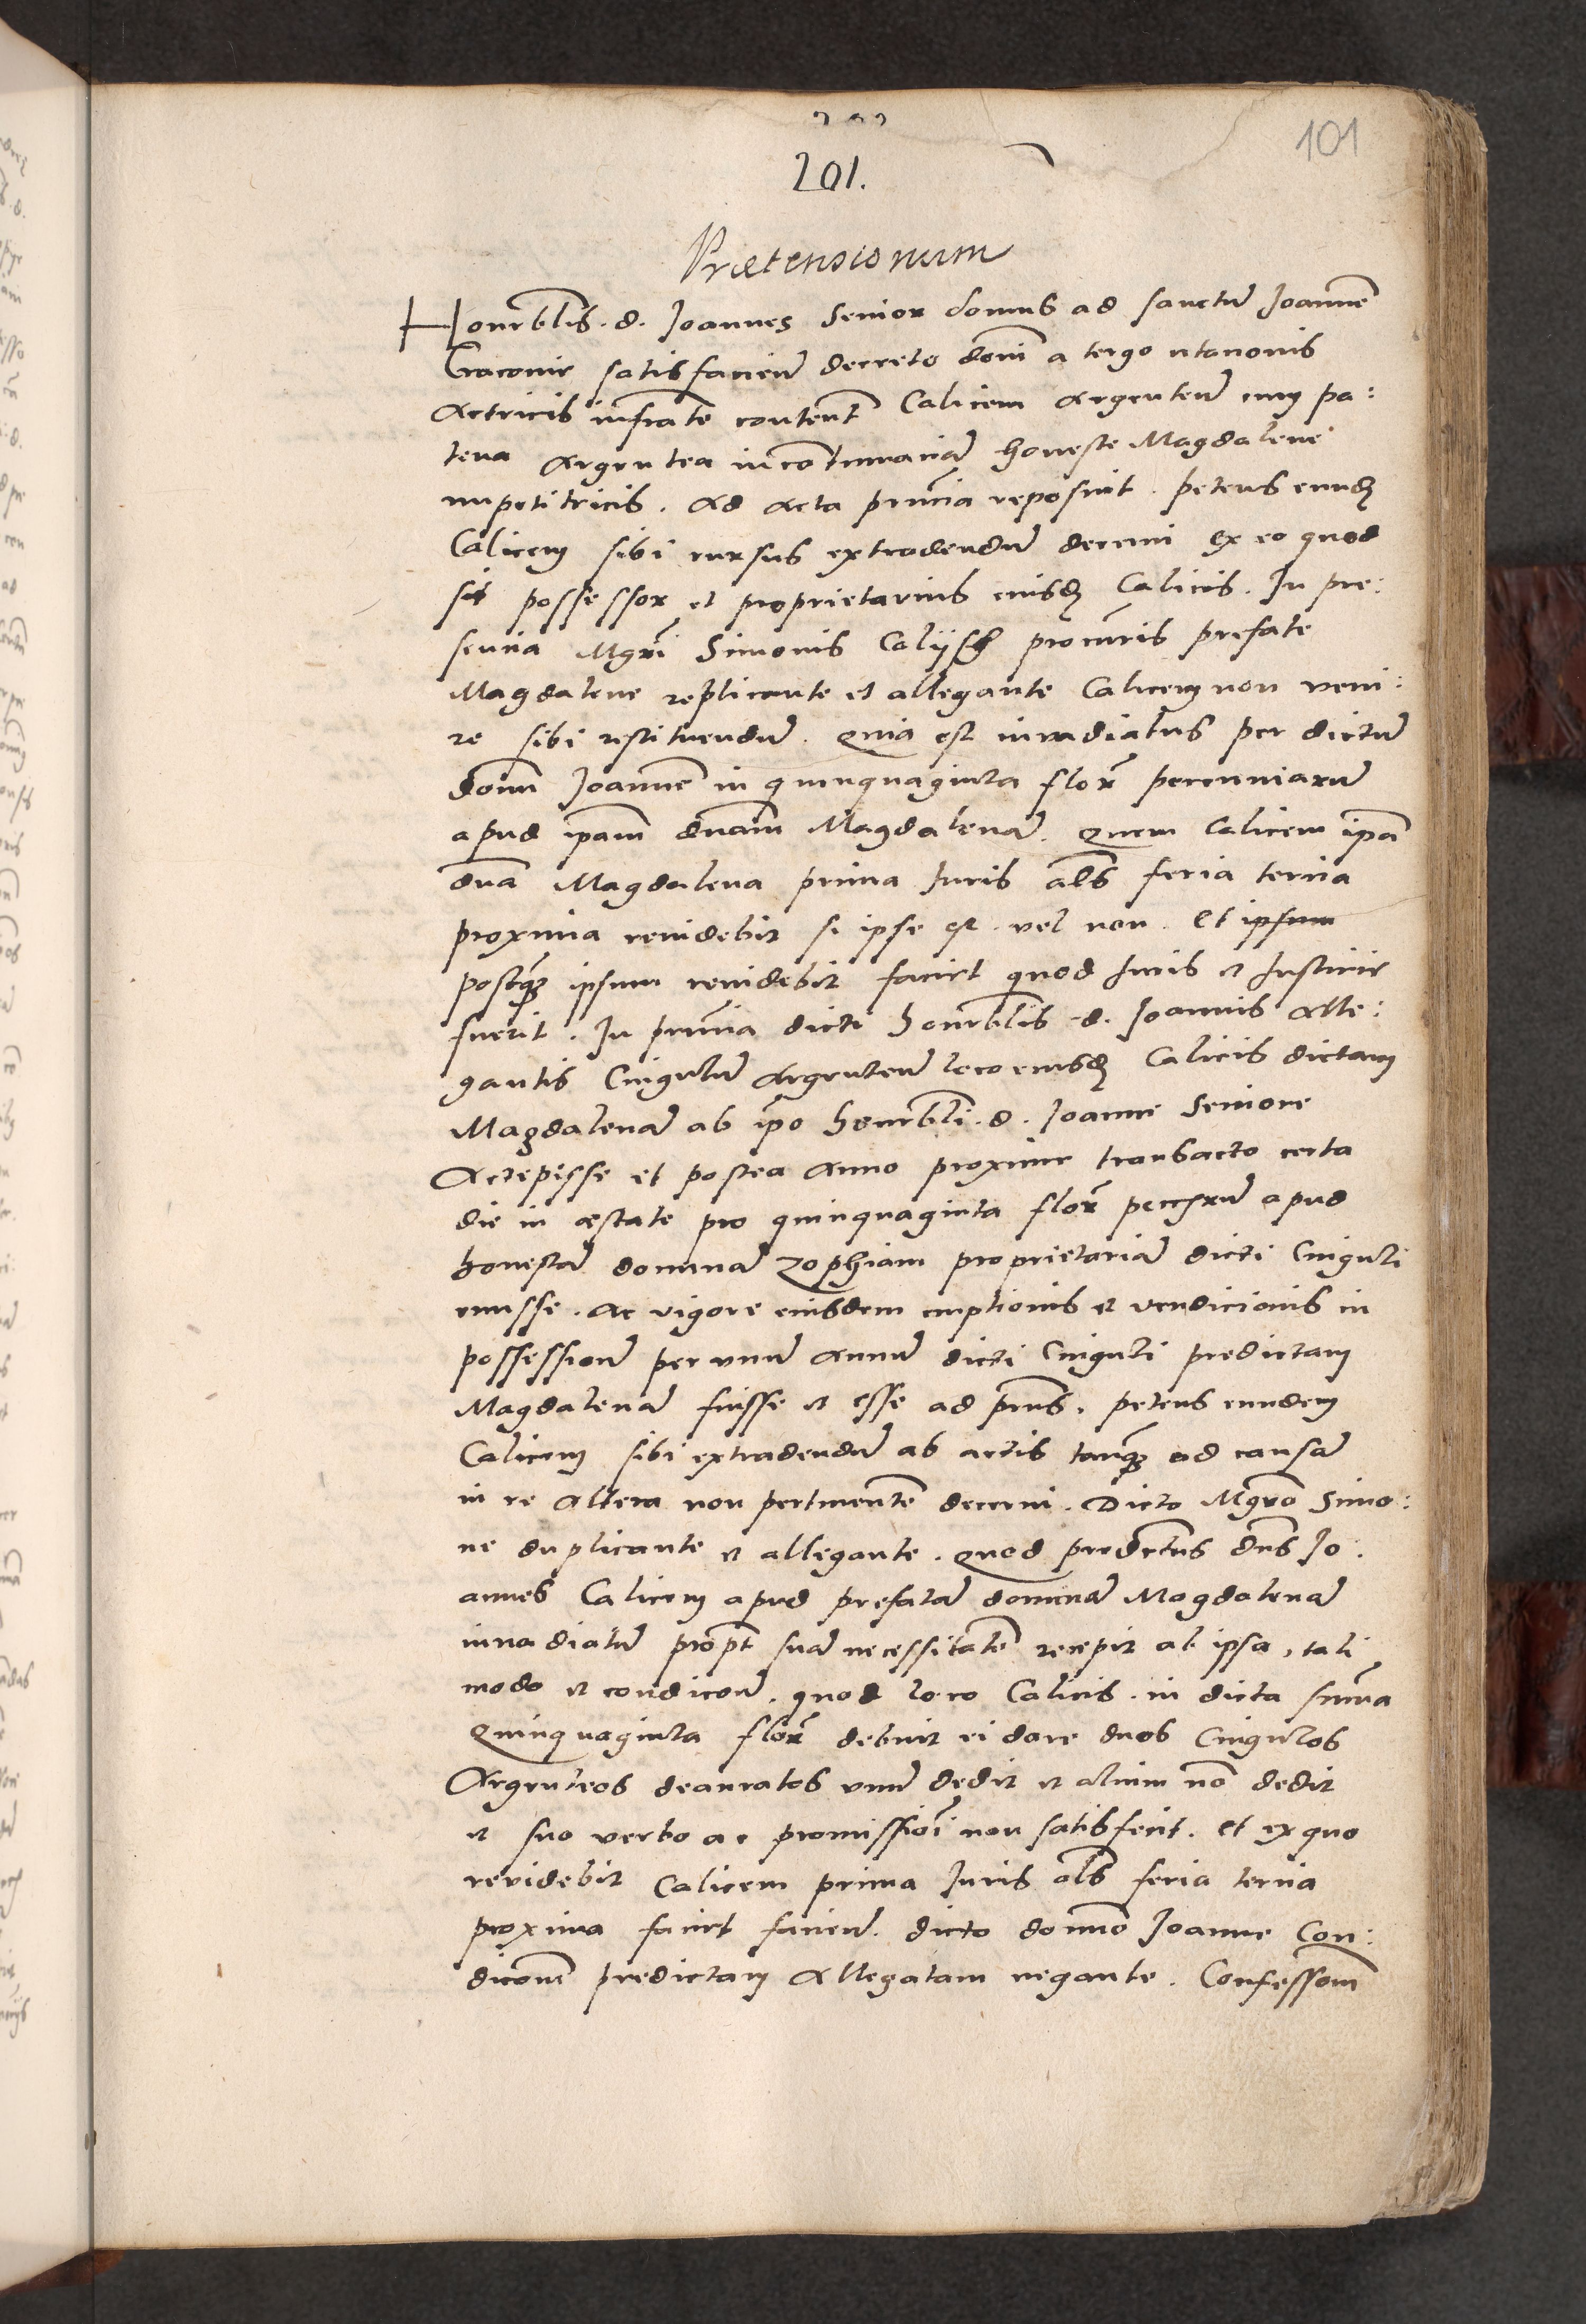 101
201.
Prætensionum
Honrblis. d. Joannes Senior domus ad sanctū Joannē
Cracovie satisfaciend̄ decreto dōni a tergo
Actricis infrate content̄ Calicem Argenteū cum pa:
tena Argentea in cōtumaciā honeste Magdalene
impetitricis. ad acta pr̄ncia reposuit. petens eundē
Calicem sibi rursus extradendū decerni Ex eo quod
sit possessor et proprietarius eiusdē Calicis. In pre:
sencia Mgr̄i Simonis procūris prefate
Magdalene replicante et allegante Calicem non veni:
re sibi restituendū. Quia est invadiatus per dictū
dōnū Joannē in quinquaginta flor̄ pecuniarū
apud ipam̄ dnam̄ Magdalenā. Quem Calicem ipā
dnā Magdalena prima Juris als̄ feria tercia
proxima revidebit si ipse est vel non. Et ipsum
postq̄ ipsum revidebit faciet quod Juris et Justicie
fuerit. In prn̄cia dicti honrblis d. Joannis Alle:
gantis Cingulū Argenteū loco eiusdē Calicis dictam
Magdalenā ab ip̄o honrbli. d. Joanne Seniore
Accepisse et postea Anno proxime transacto certa
die in æstate pro quinquaginta flor̄ apud
honestā dominā Zophiam proprietariā dicti Cinguli
emisse. Ac vigore eiusdem emptionis et vendicionis in
possessionē per unū Annū dicti Cinguli predictam
Magdalenā fuisse et esse ad pn̄s. petens eundem
Calicem sibi extradendū ab actis tanq̄ ad causā
in re Altera non pertinentē decerni. Dicto Mgrō Simo:
ne duplicante et allegante. Quod predictus dns̄ Jo.
annes Calicem apud prefatā dominā Magdalenā
invadiatū propt̄ suā necessitatē recepit ab ipsa, tali
modo et condicōne. quod loco Calicis. in dicta sum̄a
Quinquaginta flor̄ debuit ei dare duos Cingulos
Argenteos deauratos unū dedit et alium nō dedit
et suo verbo ac promissiōi non satisfecit. Et ex quo
revidebit Calicem prima Juris als̄ feria tercia
proxima faciet faciend̄. dicto domino Joanne Con:
dicōnē predictam Allegatam negante. Confessionē